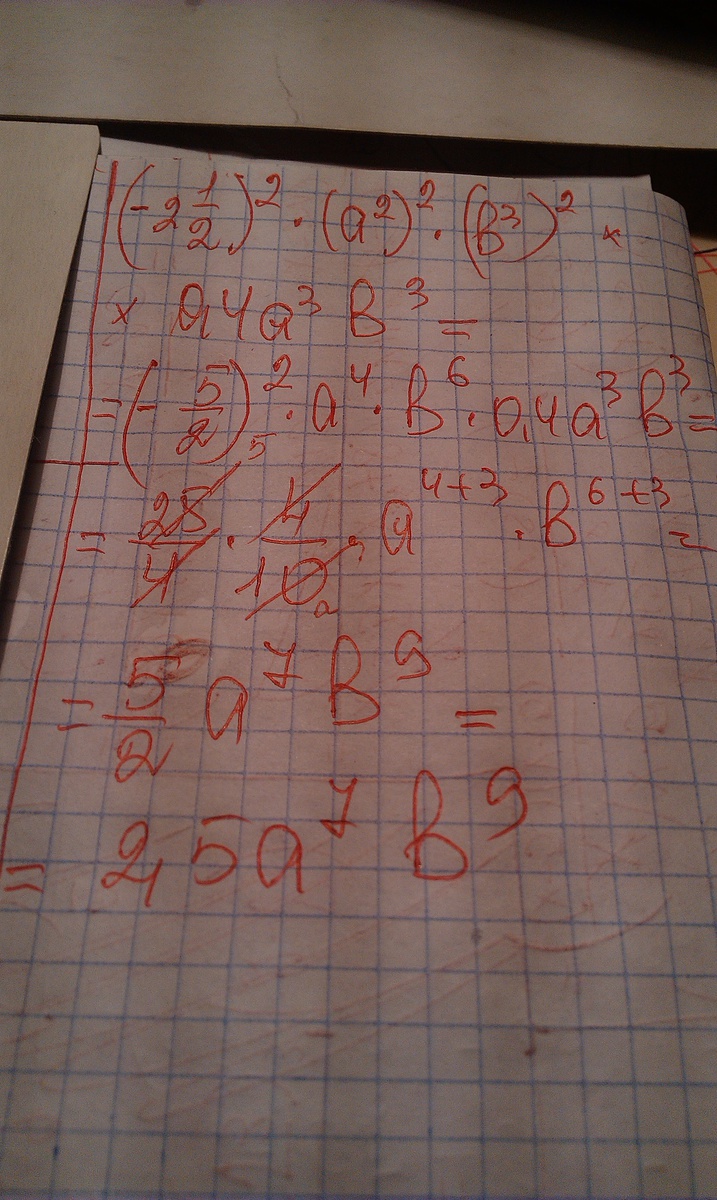 (-2 1/2)² · (a²)² · (b³)² ×
× 0,4a³ b³ =
= (- 5/2)² · a⁴ · b⁶ · 0,4a³ b³ =
= 25/4 · 4/10 · a⁴⁺³ · b⁶⁺³ =
= 5/2 a⁷ b⁹ =
= 2,5a⁷ b⁹